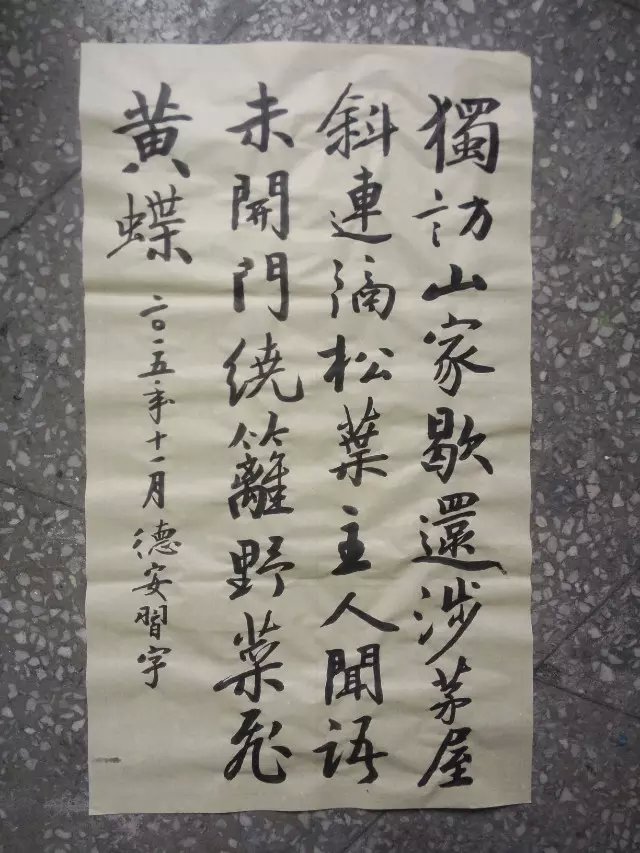 獨訪山家歇還涉茅屋
斜連隔松葉主人聞语
未開門繞籬野菜飛
黄蝶
二〇一五年十一月德安習字